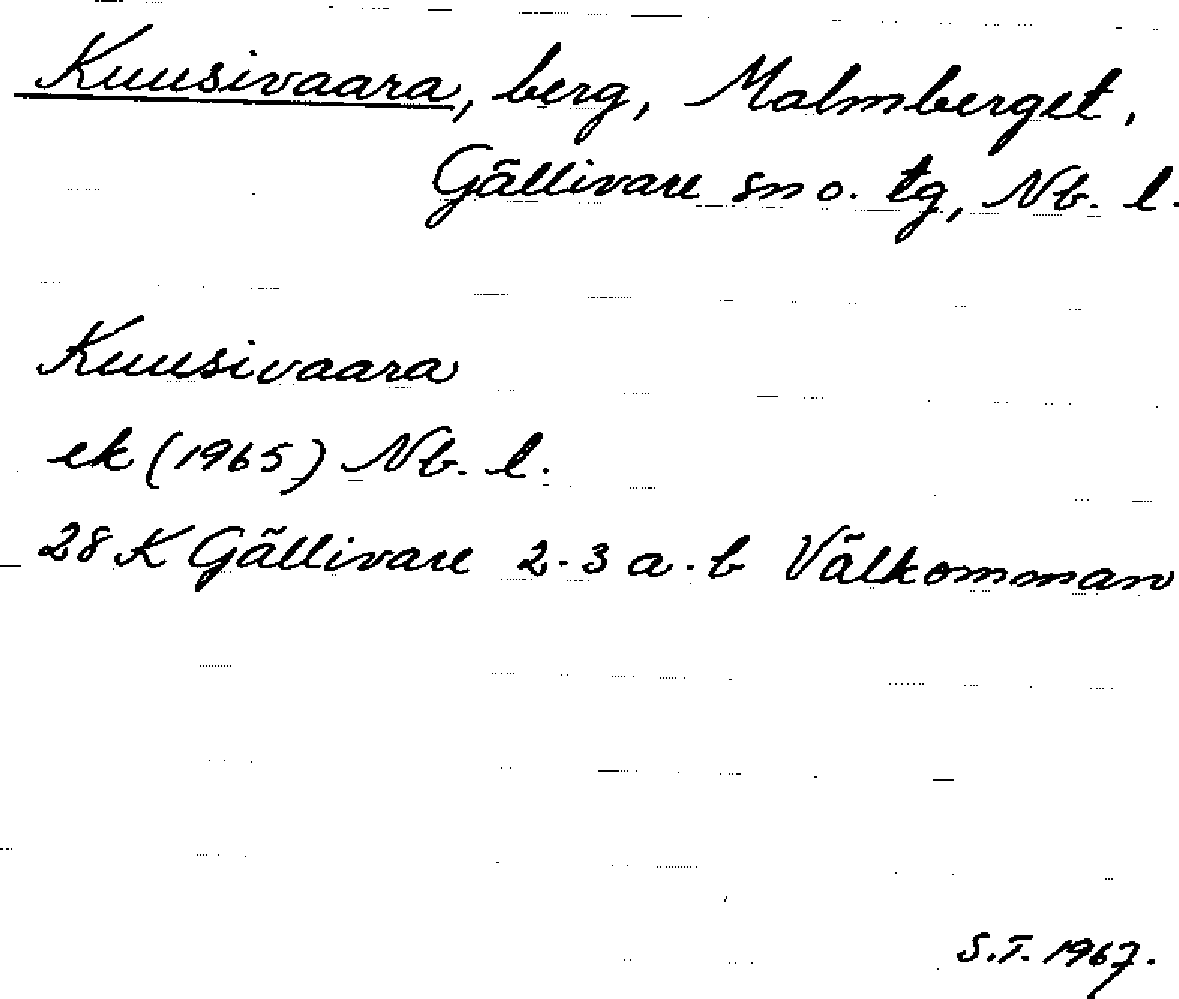 Kuusivaara, berg, Malmberget.
Gällivare sn o. tg, Nb. l.
Kuusivaara
ek (1965) Nb. l.
28 K Gällivare 2-3 a-b Välkomman
S.T. 1967.